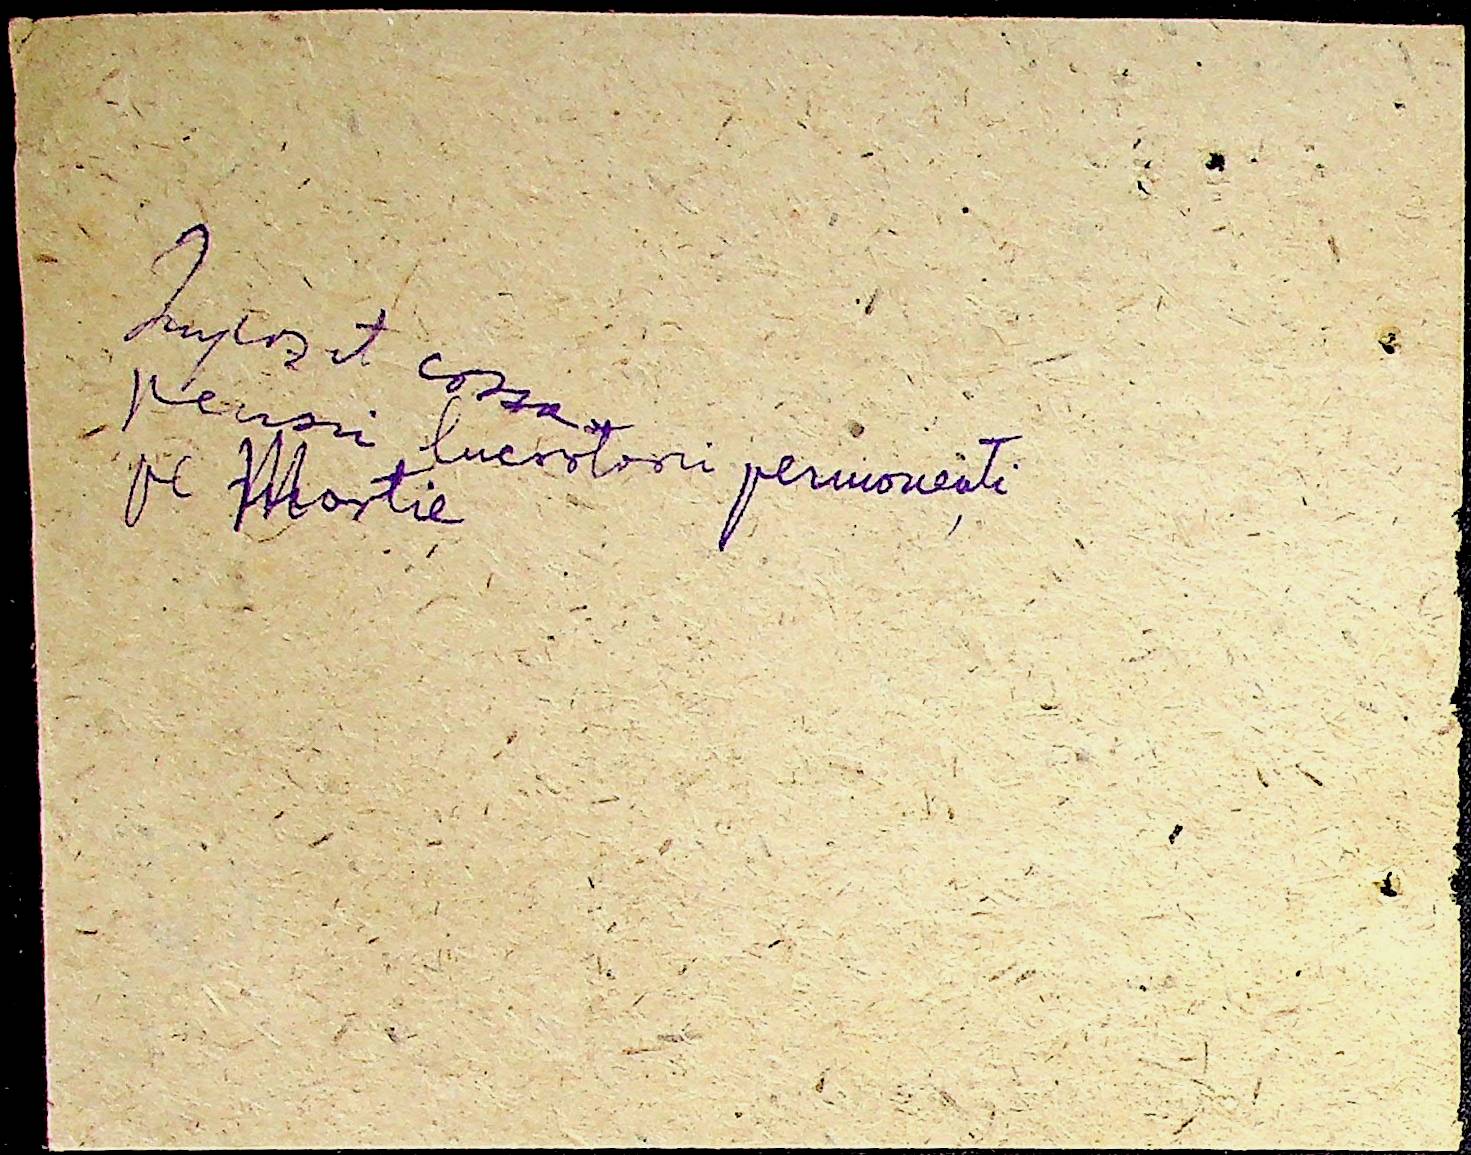 Impozit cassa
pensii lucrători permanenți
pe Martie